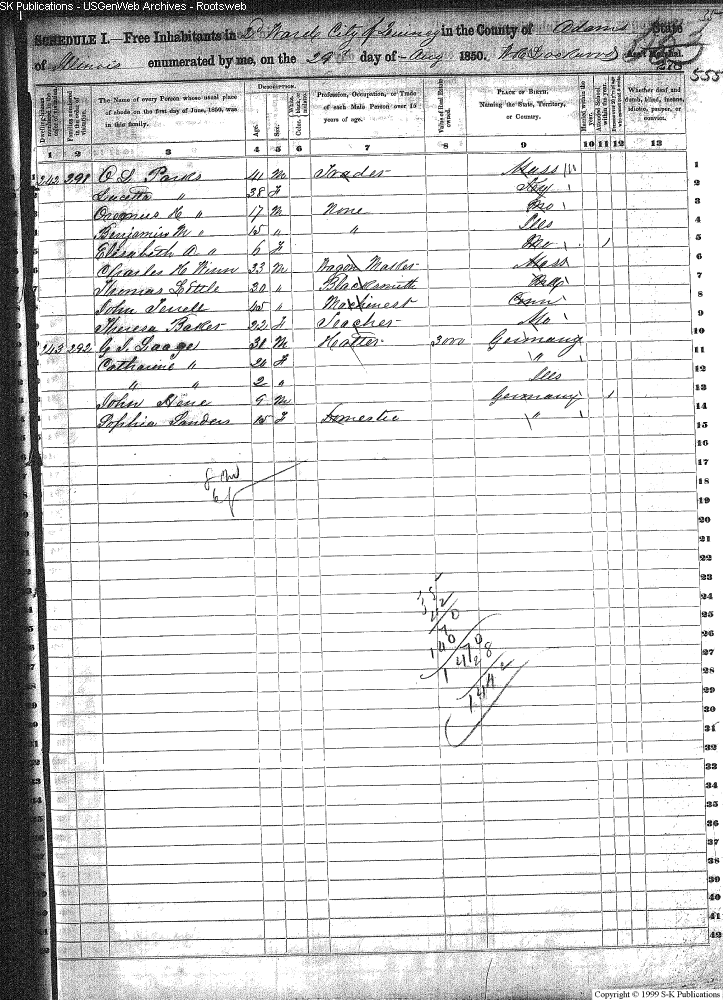 SK Publications - USGenWeb Archives - Rootsweb
SCHEDULE I.—Free Inhabitants in 2d Ward City of Quincy in the County of Adams State
of Illinois enumerated by me, on the 29 day of Aug 1850. Ass't Marshal.
555
Dwelling-houses numbered in the order of visitation.
Families numbered in the order of visitation.
The Name of every Person whose usual place of abode on the first day of June, 1850, was in this family.
DESCRIPTION.
Age.
Sex.
Color, White, black, or mulatto.
Profession, Occupation, or Trade of each Male Person over 15 years of age.
Value of Real Estate owned.
PLACE OF BIRTH. Naming the State, Territory, or Country.
Married within the year.
Attended School within the year.
Whether deaf and dumb, blind, insane, idiotic, pauper, or convict.
1 2 3 4 5 6 7 8 9 10 11 12 13
1 242 291 Parks 41 M Trader Mass 1
2 Lucetta " 38 F Ky 2
3 " 17 M None Mo 3
4 Benjamin M " 15 " " Ills 4
5 Elizabeth A " 6 F Mo 5
6 Charles H Winn 33 M Wagon Maker Mass 6
7 Thomas Little 30 " Blacksmith 7
8 John Terrell 45 " Machinest Conn 8
9 Theresa Baker 22 F Teacher Mo 9
10 243 292 31 M Hatter 3000 Germany 10
11 Catharine " 20 F " 11
12 " " 2 " Ills 12
13 John 9 M Germany 13
14 Sophia Sanders 15 F Domestic " 14
15
16
17
18
19
20
21
22
23
24
25
26
27
28
29
30
31
32
33
34
35
36
37
38
39
40
41
42
Copyright © 1999 S-K Publications